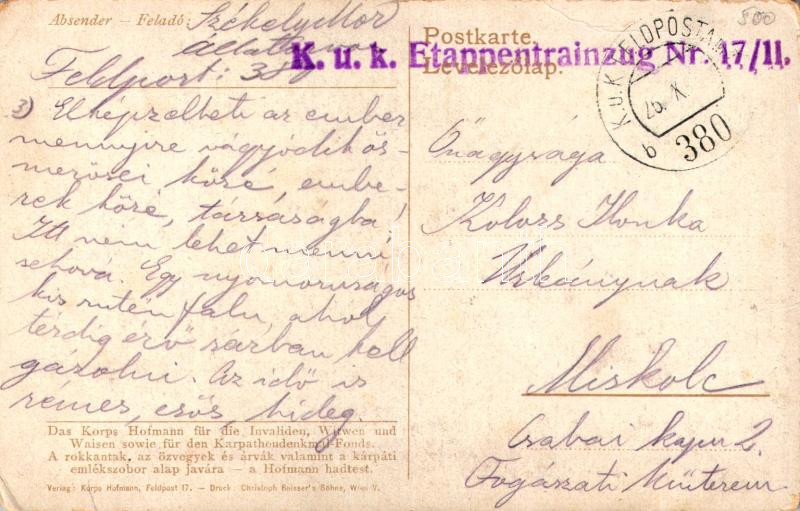 Absender – Feladó: Székely Mór
Feldpost: 380
K. u. k. Etappentrainzug Nr. 17/II.
Postkarte.
Levelezőlap.
500
K.U.K. FELDPOSTAMT
26. X.
b
380
3) Elképzelheti az ember
mennyire vágyódik ös-
merősei köré, embe-
rek köré, társaságba!
Itt nem lehet menni
sehová. Egy nyomorúságos
kis rutén falu, ahol
térdig érő sárban kell
gázolni. Az idő is
rémes, esős, hideg.
Das Korps Hofmann für die Invaliden, Witwen und
Waisen sowie für den Karpathendenkmal-Fonds.
A rokkantak, az özvegyek és árvák valamint a kárpáti
emlékszobor alap javára — a Hofmann hadtest.
Verlag: Korps Hofmann, Feldpost 17. – Druck: Christoph Reisser's Söhne, Wien V.
Őnagysága
Kolozs Ilonka
Urleánynak
Miskolc
Csabai kapu 2.
Fogászati Műterem